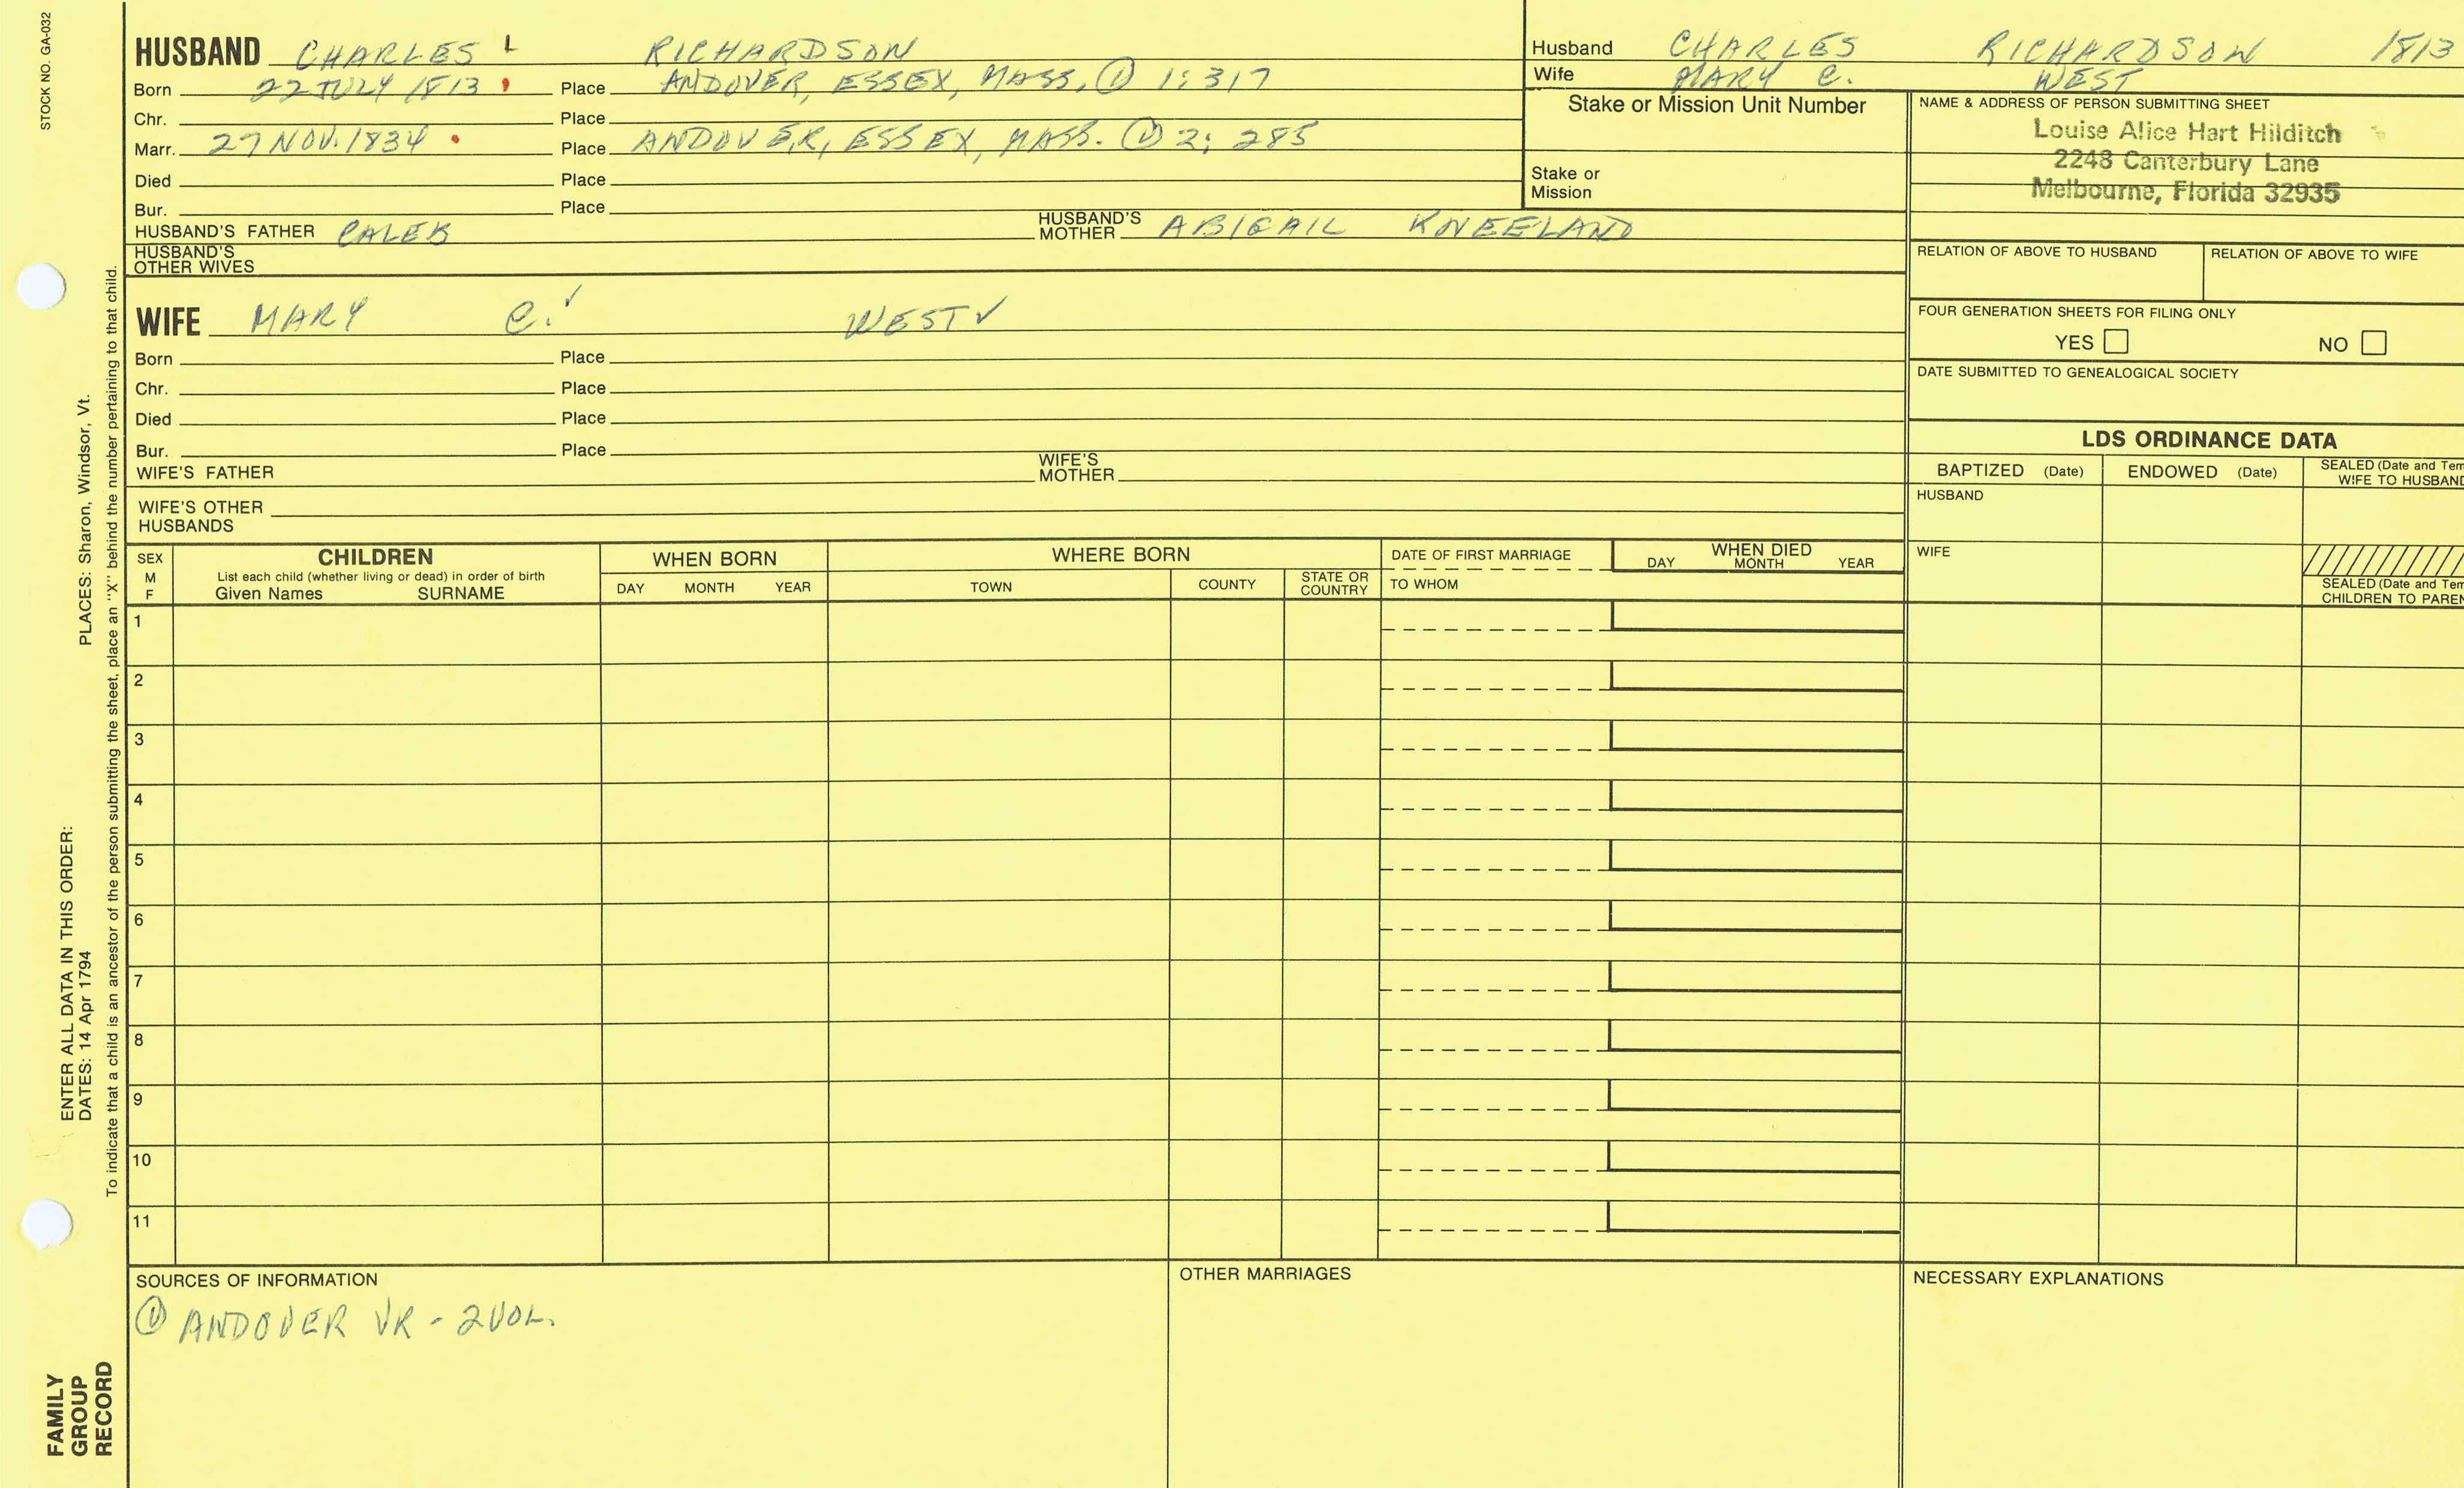 STOCK NO. GA-032
HUSBAND CHARLES L RICHARDSON
Born 22 JULY 1813 Place ANDOVER, ESSEX, MASS, ① 1: 317
Chr. Place
Marr. 27 NOV. 1834 Place ANDOVER, ESSEX, MASS. ① 2: 285
Died Place
Bur. Place
HUSBAND'S FATHER CALEB HUSBAND'S MOTHER ABIGAIL KNEELAND
HUSBAND'S OTHER WIVES
WIFE MARY C. ✓ WEST ✓
Born Place
Chr. Place
Died Place
Bur. Place
WIFE'S FATHER WIFE'S MOTHER
WIFE'S OTHER HUSBANDS
Husband CHARLES RICHARDSON 1813
Wife MARY C. WEST
Stake or Mission Unit Number
Stake or
Mission
NAME & ADDRESS OF PERSON SUBMITTING SHEET
Louise Alice Hart Hilditch
2248 Canterbury Lane
Melbourne, Florida 32935
RELATION OF ABOVE TO HUSBAND RELATION OF ABOVE TO WIFE
FOUR GENERATION SHEETS FOR FILING ONLY
YES NO
DATE SUBMITTED TO GENEALOGICAL SOCIETY
LDS ORDINANCE DATA
BAPTIZED (Date) ENDOWED (Date) SEALED (Date and Tem
WIFE TO HUSBAND
HUSBAND
WIFE
SEALED (Date and Tem
CHILDREN TO PAREN
SEX
M
F
CHILDREN
List each child (whether living or dead) in order of birth
Given Names SURNAME
WHEN BORN
DAY MONTH YEAR
WHERE BORN
TOWN COUNTY STATE OR COUNTRY
DATE OF FIRST MARRIAGE
TO WHOM
WHEN DIED
DAY MONTH YEAR
1
2
3
4
5
6
7
8
9
10
11
SOURCES OF INFORMATION
① ANDOVER VR - 2 VOL.
OTHER MARRIAGES
NECESSARY EXPLANATIONS
ENTER ALL DATA IN THIS ORDER:
DATES: 14 Apr 1794 PLACES: Sharon, Windsor, Vt.
To indicate that a child is an ancestor of the person submitting the sheet, place an "X" behind the number pertaining to that child.
FAMILY
GROUP
RECORD